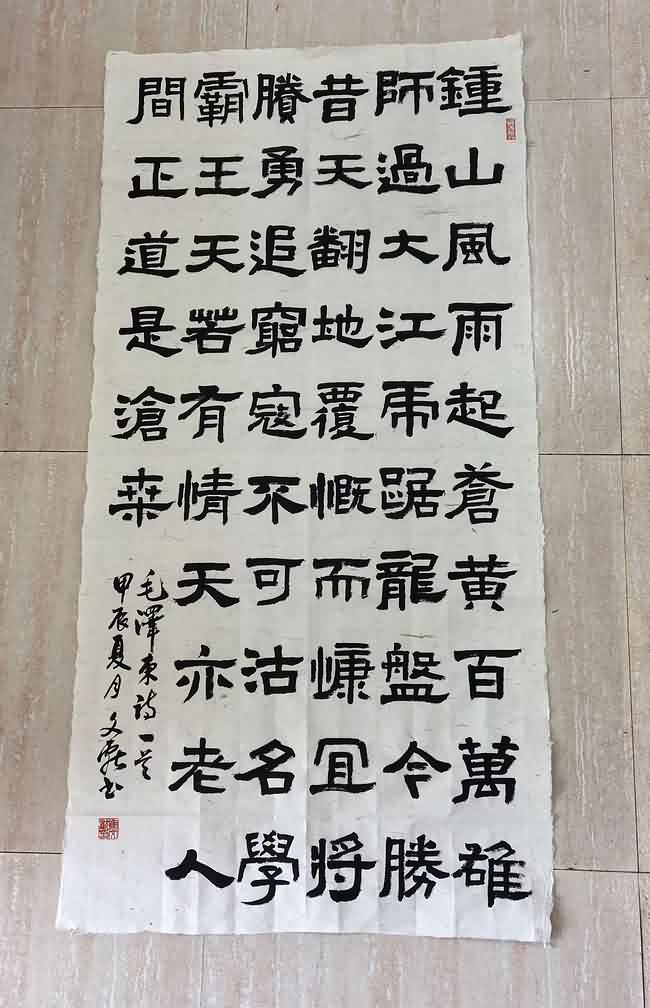 鍾山風雨起蒼黃百萬雄
師過大江虎踞龍盤今勝
昔天翻地覆慨而慷宜將
賸勇追窮寇不可沽名學
霸王天若有情天亦老人
間正道是滄桒
毛澤東詩一首
甲辰夏月文書